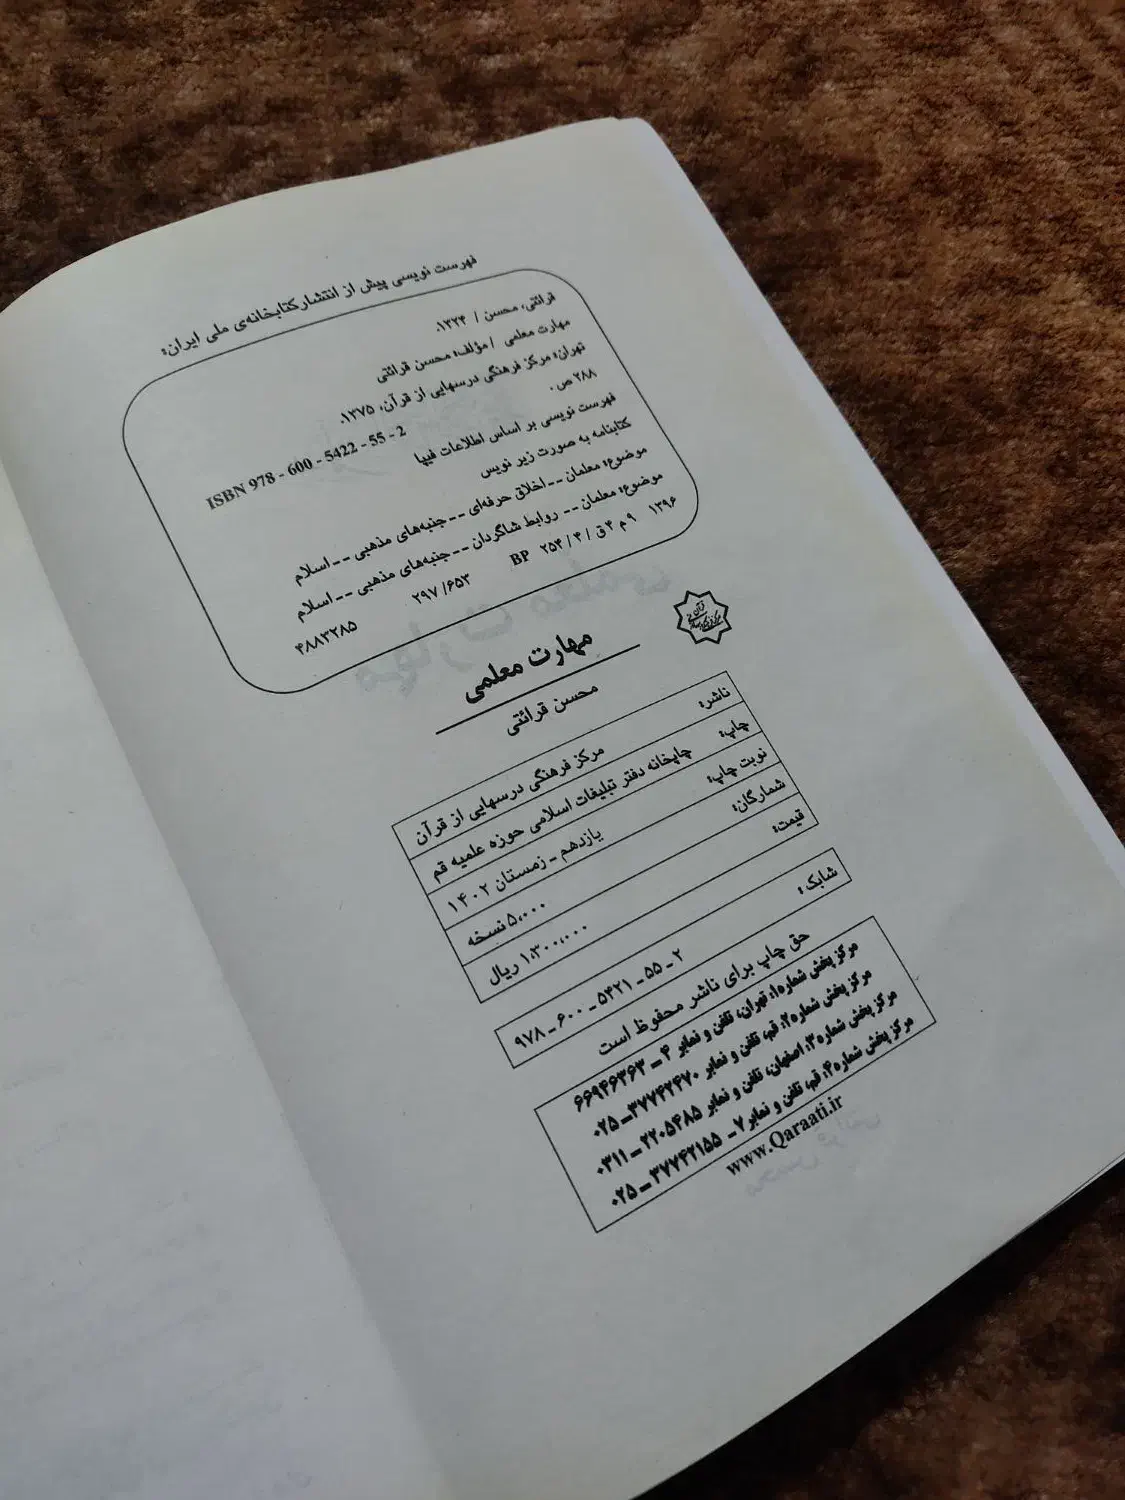 فهرست نویسی پیش از انتشار کتابخانه‌ی ملی ایران:
قرائتی، محسن / ۱۳۲۴.
مهارت معلمی / مؤلف: محسن قرائتی
تهران: مرکز فرهنگی درسهایی از قرآن، ۱۳۷۵.
۲۸۸ ص.
ISBN 978 - 600 - 5422 - 55 - 2
فهرست نویسی بر اساس اطلاعات فیپا
کتابنامه به صورت زیر نویس
موضوع: معلمان -- اخلاق حرفه‌ای -- جنبه‌های مذهبی -- اسلام
موضوع: معلمان -- روابط شاگردان -- جنبه‌های مذهبی -- اسلام
۱۳۹۶ ۹ م ۴ ق / ۴ / ۲۵۴ BP
۲۹۷/۶۵۳
۴۸۸۳۲۸۵
مهارت معلمی
محسن قرائتی
ناشر: مرکز فرهنگی درسهایی از قرآن
چاپ: چاپخانه دفتر تبلیغات اسلامی حوزه علمیه قم
نوبت چاپ: یازدهم ـ زمستان ۱۴۰۲
شمارگان: ۵،۰۰۰ نسخه
قیمت: ۱،۳۰۰،۰۰۰ ریال
شابک: ۲ ـ ۵۵ ـ ۵۴۲۱ ـ ۶۰۰ ـ ۹۷۸
حق چاپ برای ناشر محفوظ است
مرکز پخش شماره۱: تهران، تلفن و نمابر ۴ ـ ۶۶۹۴۶۳۶۳
مرکز پخش شماره۲: قم، تلفن و نمابر ۳۷۷۴۲۴۷۰ـ ۰۲۵
مرکز پخش شماره۳: اصفهان، تلفن و نمابر ۲۲۰۵۴۸۵ ـ ۰۳۱۱
مرکز پخش شماره۴: قم، تلفن و نمابر ۷ ـ ۳۷۷۴۲۱۵۵ ـ ۰۲۵
www.Qaraati.ir